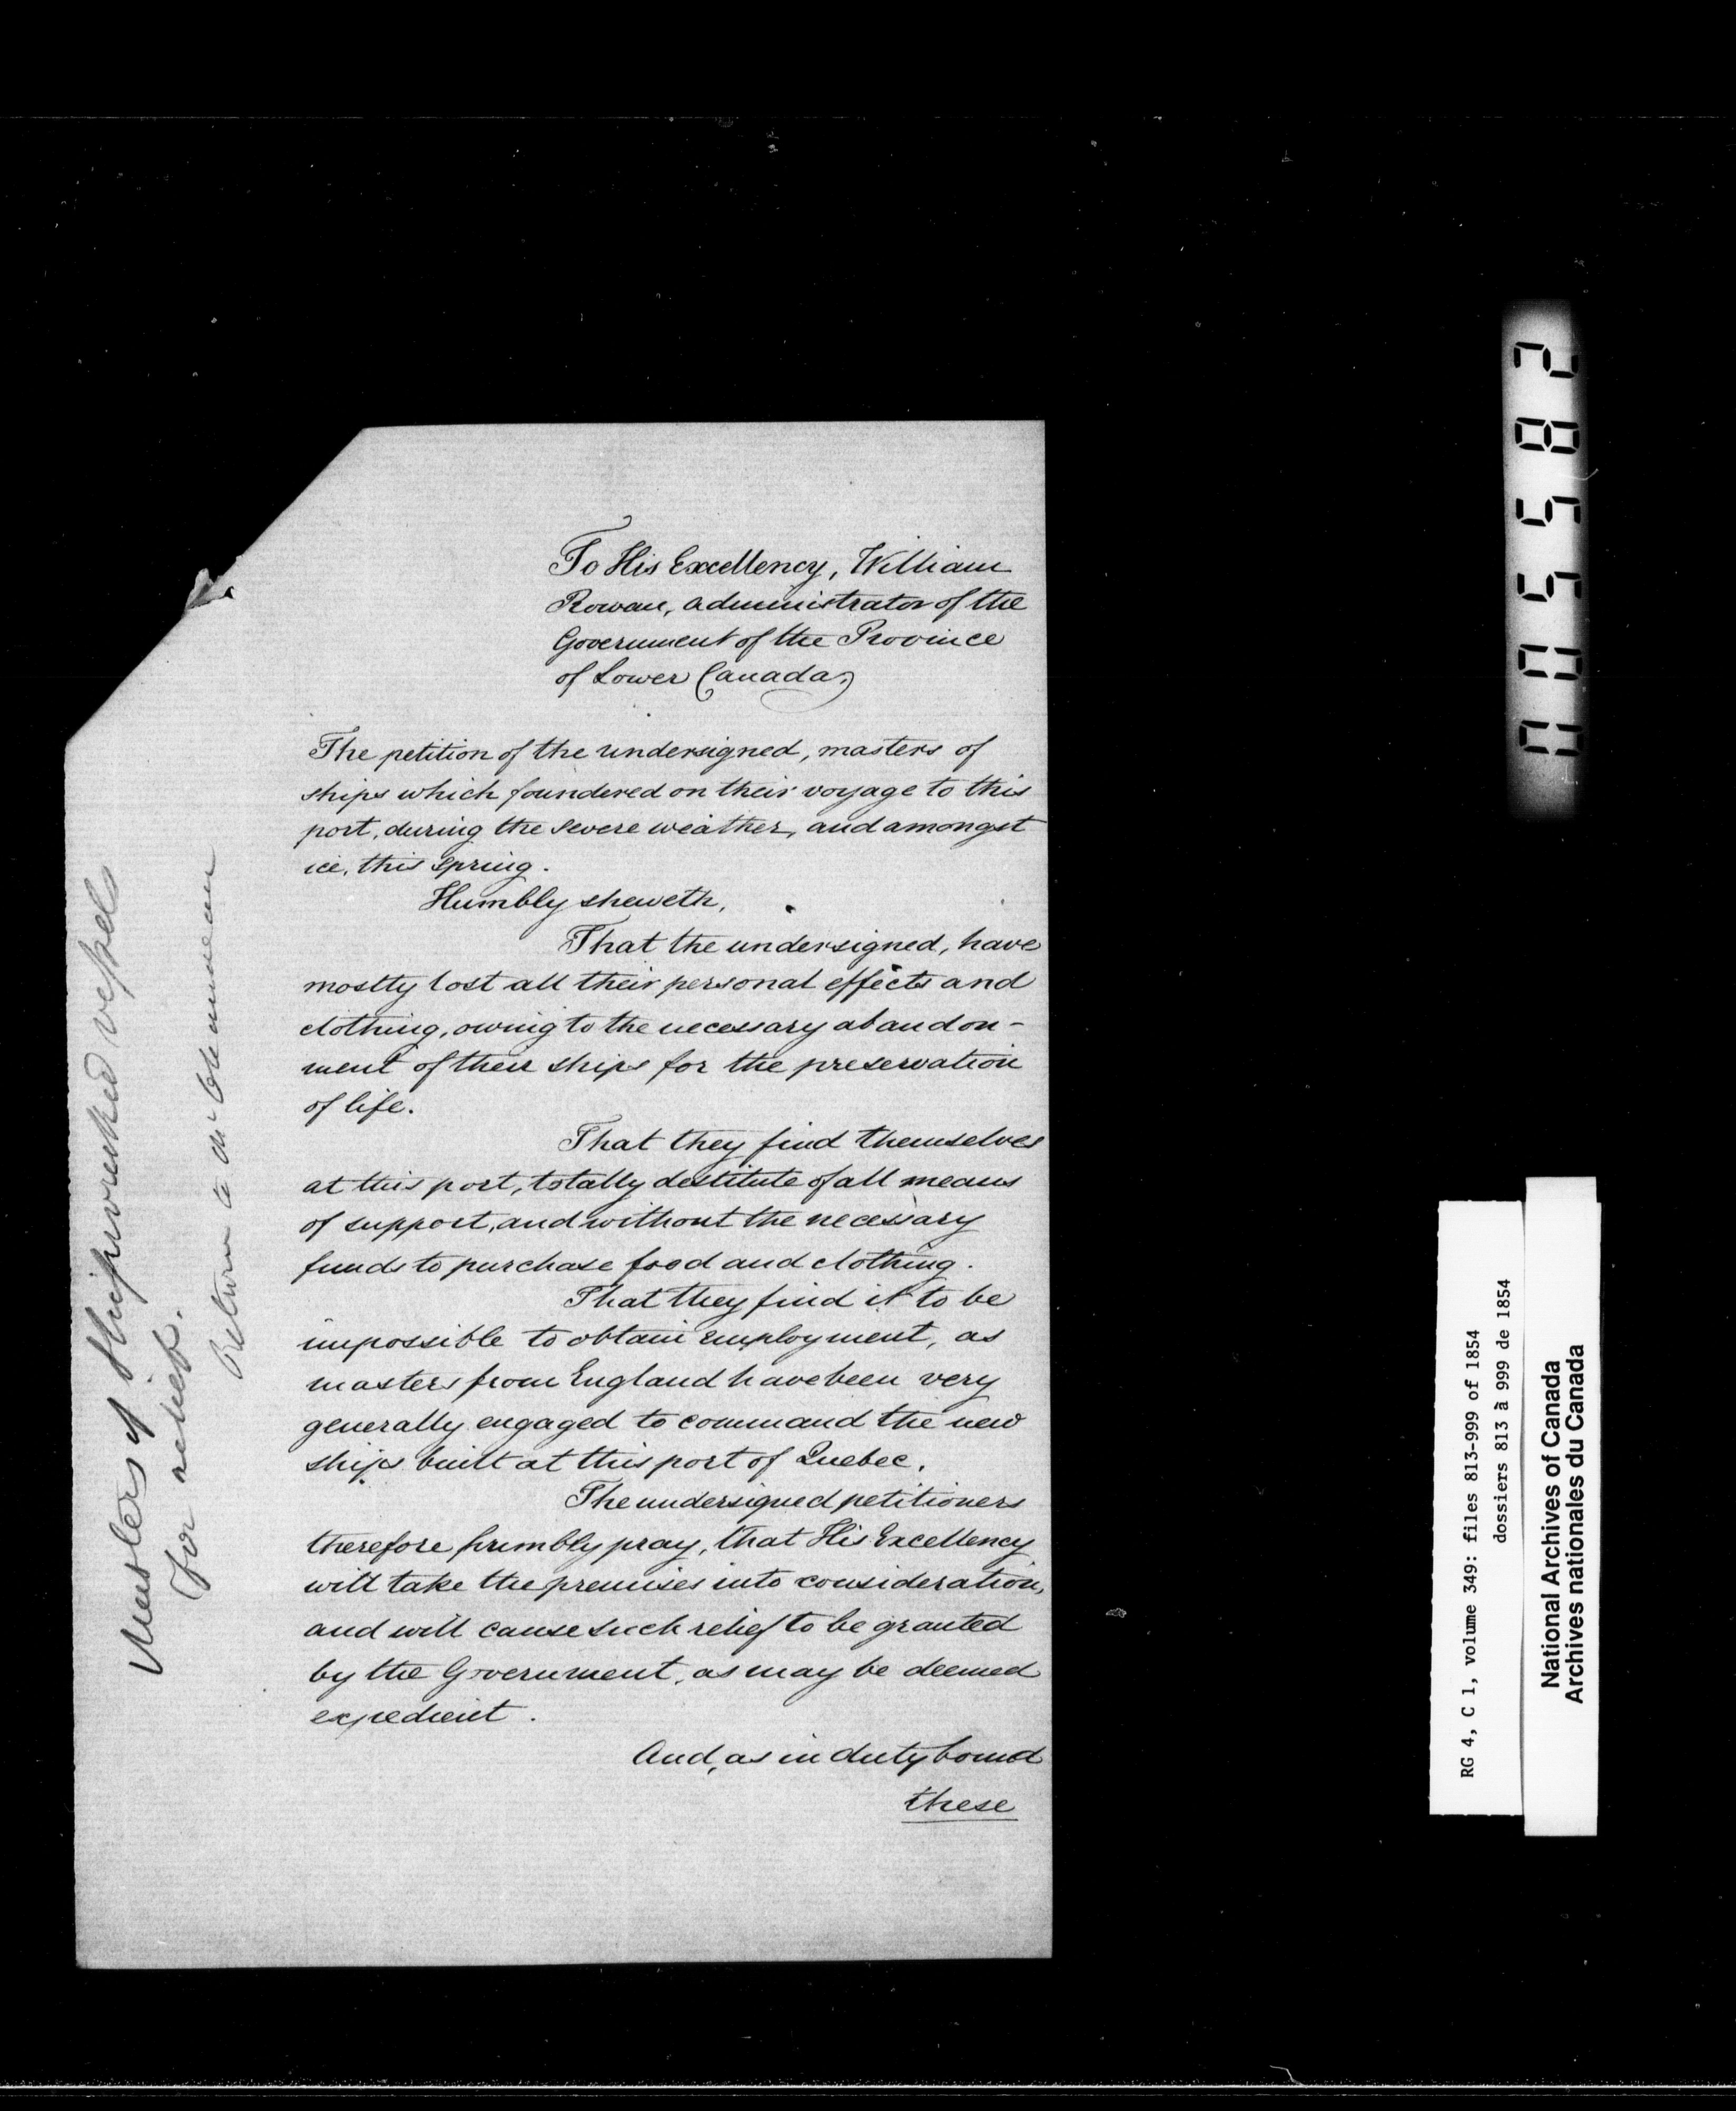 To His Excellency, William
Rowan, Administrator of the
Government of the Province
of Lower Canada,
The petition of the undersigned, masters of
ships which foundered on their voyage to this
port, during the severe weather, and amongst
ice, this spring.
Humbly sheweth,
That the undersigned, have
mostly lost all their personal effects and
clothing, owing to the necessary abandon-
ment of their ships for the preservation
of life.
That they find themselves
at this port, totally destitute of all means
of support, and without the necessary
funds to purchase food and clothing.
That they find it to be
impossible to obtain employment, as
masters from England have been very
generally engaged to command the new
ships built at this port of Quebec.
The undersigned petitioners
therefore humbly pray, that His Excellency
will take the premises into consideration,
and will cause such relief to be granted
by the Government, as may be deemed
expedient.
And, as in duty bound
these
Masters of Shipwrecked vessels
for relief.
Return to Mr
005582
RG 4, C 1, volume 349: files 813-999 of 1854
dossiers 813 à 999 de 1854
National Archives of Canada
Archives nationales du Canada